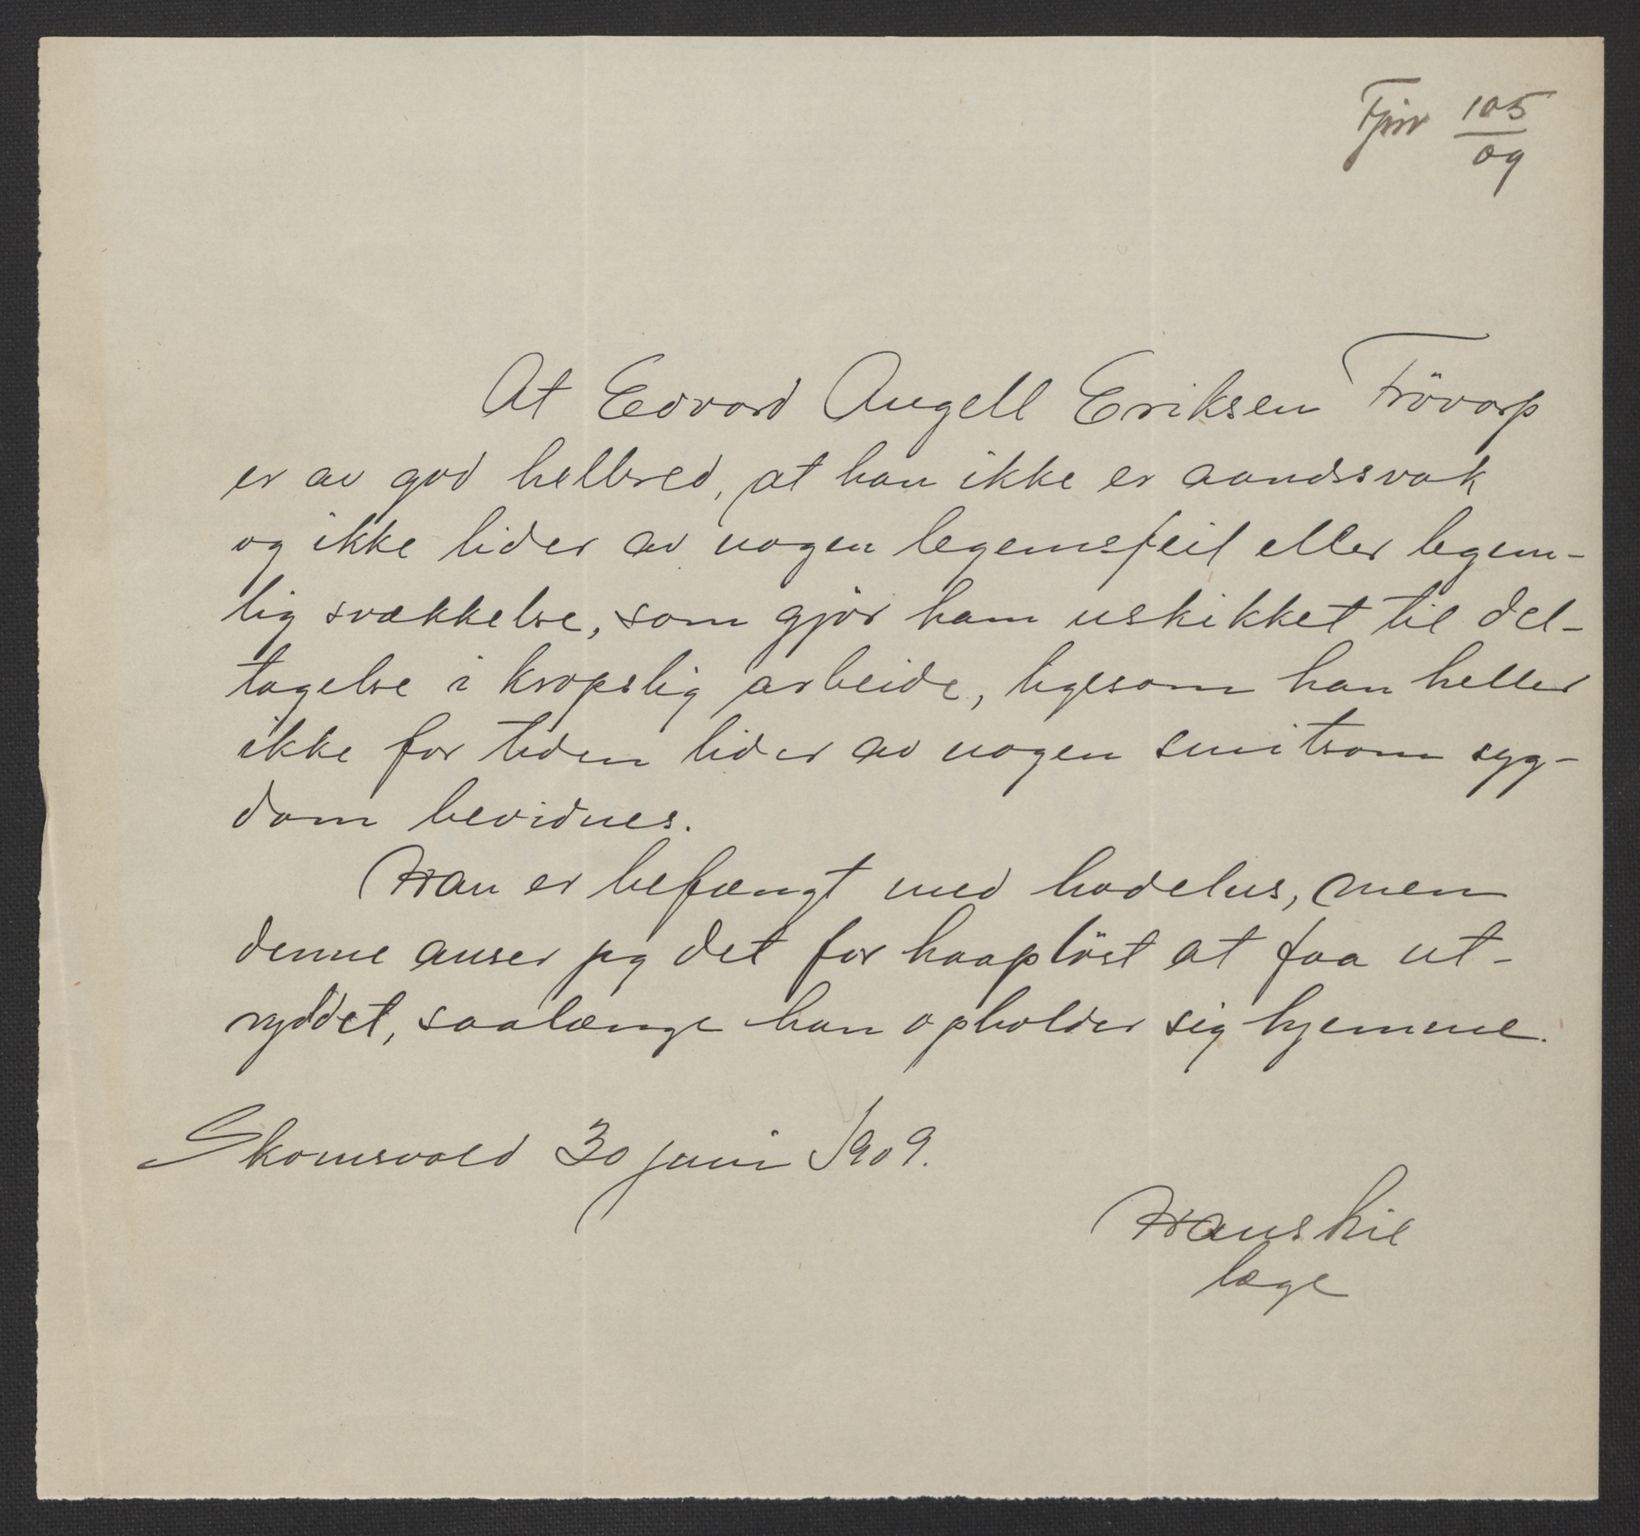 105
09
At Edvard Angell Eriksen Frövarp
er av god helbred, at han ikke er aandssvak
og ikke lider av nogen legemsfeil eller legem-
lig svækkelse, som gjör ham uskikket til del-
tagelse i kropslig arbeide, ligesom han heller
ikke for tiden lider av nogen smitsom syg-
dom bevidnes.
Han er befængt med hodelus, men
denne anser jeg det for haaplöst at faa ut-
ryddet, saalænge han opholder sig hjemme.
30 juni 1909.
Hans
læge